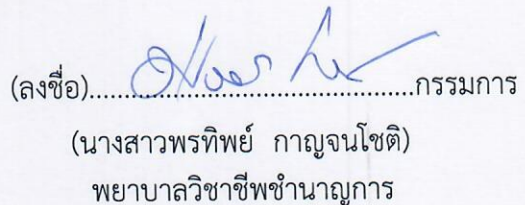 (ลงชื่อ)........................................กรรมการ
(นางสาวพรทิพย์ กาญจนโชติ)
พยาบาลวิชาชีพชำนาญการ